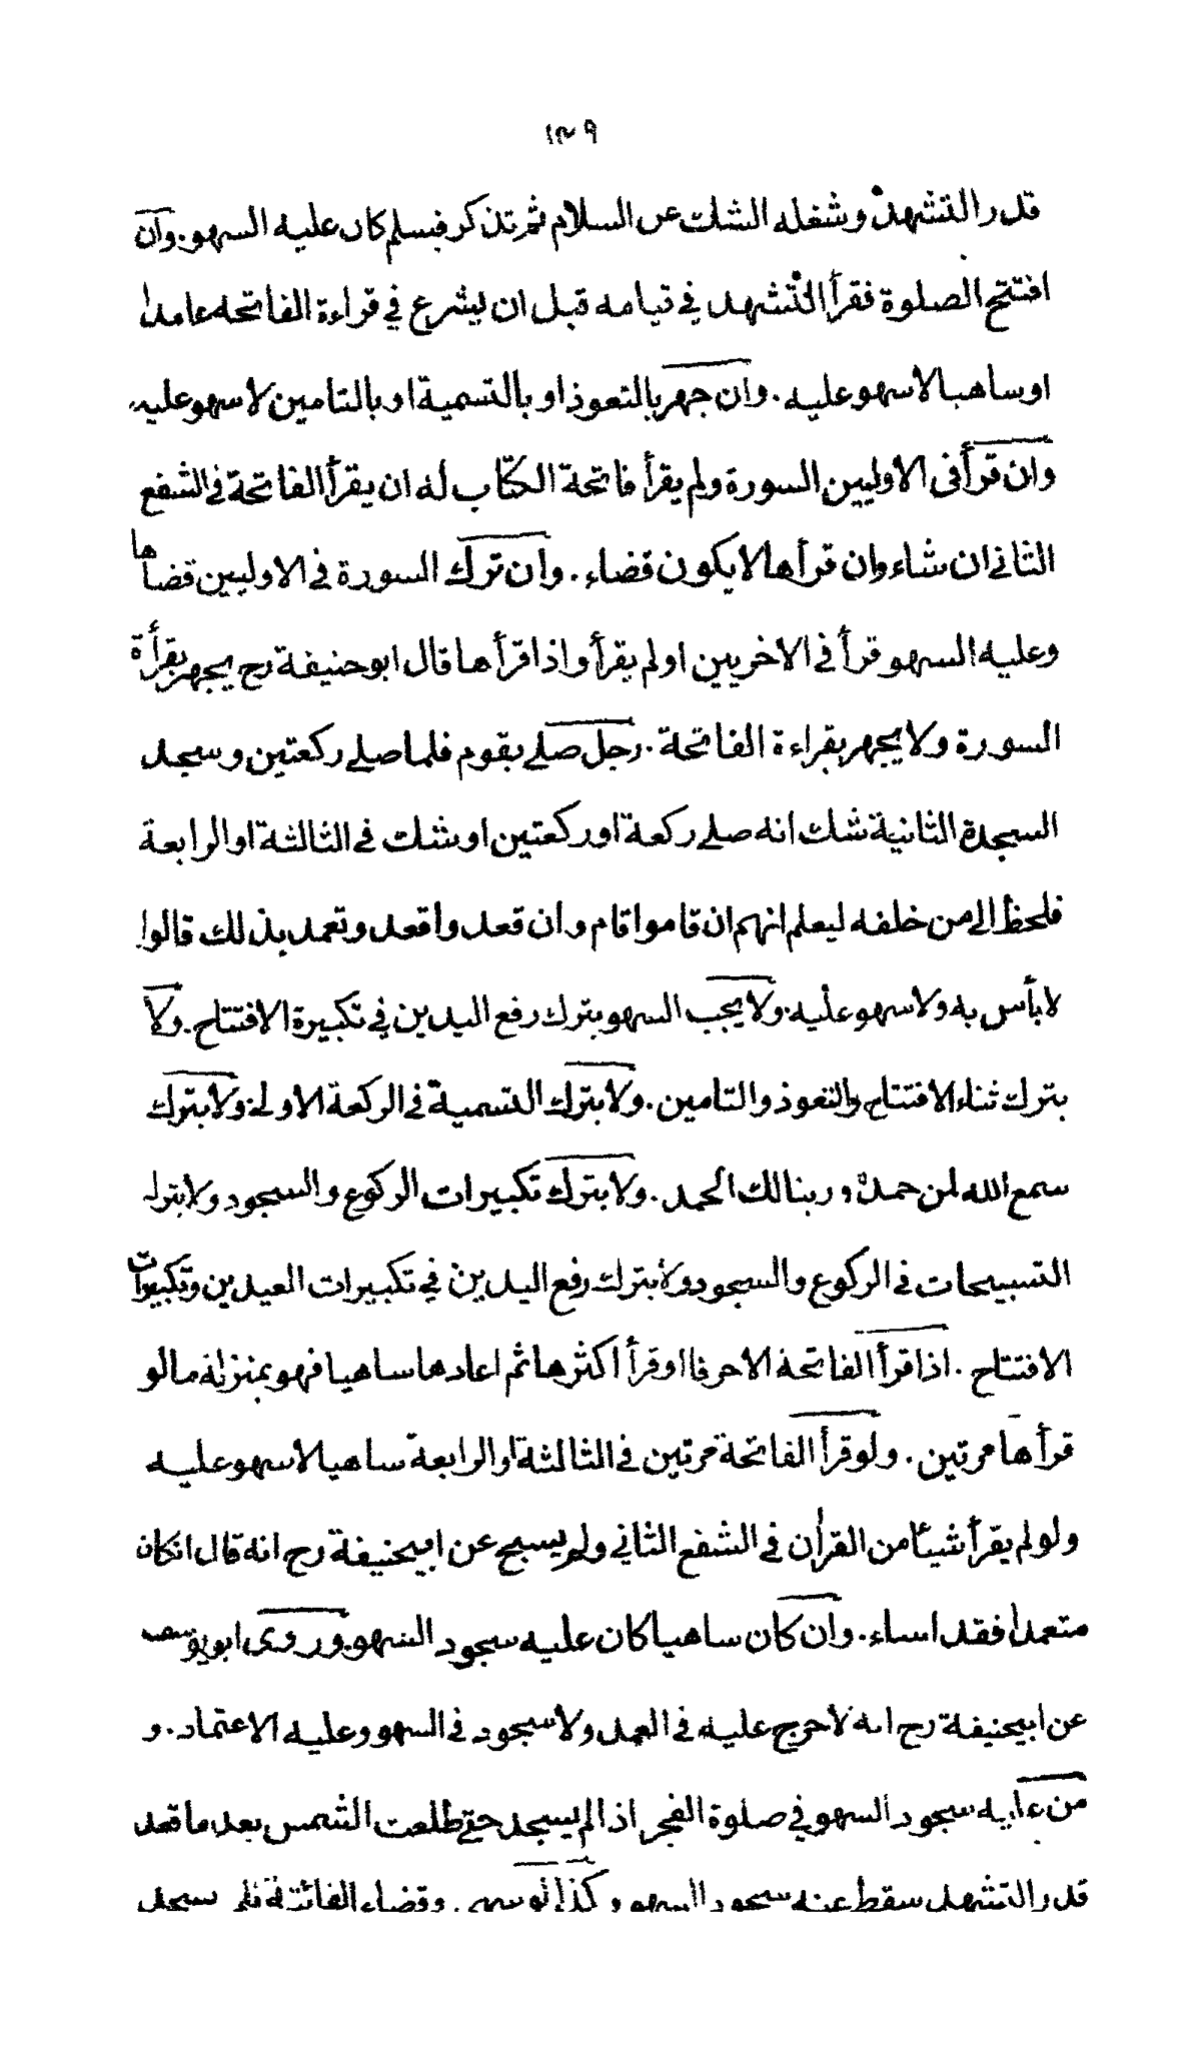 ١٣٩
قدر التشهد وشغله الشك عن السلام ثم تذكر فسلم كان عليه السهو. وان
افتتح الصلوة فقرأ التشهد في قيامه قبل ان يشرع في قراءة الفاتحه عامدا
او ساهيا لا سهو عليه. وان جهر بالتعوذ او بالتسمية او بالتامين لا سهو عليه
وان قرأ فى الاوليين السورة ولم يقرأ فاتحة الكتاب له ان يقرأ الفاتحة في الشفع
الثاني ان شاء وان قرأها لا يكون قضاء. وان ترك السورة في الاوليين قضاها
وعليه السهو قرأ في الاخريين او لم يقرأ واذا قرأها قال ابو حنيفة رح يجهر بقرأة
السورة ولا يجهر بقراءة الفاتحة. رجل صلے بقوم فلما صلے ركعتين وسجد
السجدة الثانية شك انه صلے ركعة او ركعتين او شك في الثالثة او الرابعة
فلحظ الى من خلفه ليعلم انهم ان قاموا قام وان قعدوا قعد وتعمد بذلك قالوا
لا بأس به ولا سهو عليه. ولا يجب السهو بترك رفع اليدين في تكبيرة الافتتاح. ولا
بترك ثناء الافتتاح والتعوذ والتامين. ولا بترك التسمية في الركعة الاولى. ولا بترك
سمع الله لمن حمده وربنا لك الحمد. ولا بترك تكبيرات الركوع والسجود ولا بترك
التسبيحات في الركوع والسجود ولا بترك رفع اليدين في تكبيرات العيدين وتكبيرات
الافتتاح. اذا قرأ الفاتحة الا حرفا او قرأ اكثرها ثم اعادها ساهيا فهو بمنزلة ما لو
قرأها مرتين. ولو قرأ الفاتحة مرتين في الثالثة او الرابعة ساهيا لا سهو عليه
ولو لم يقرأ شيئا من القرأن في الشفع الثاني ولم يسبح عن ابيحنيفة رح انه قال انكان
متعمدا فقد اساء. وان كان ساهيا كان عليه سجود السهو. وروى ابو يوسف
عن ابيحنيفة رح انه لا حرج عليه في العمد ولا سجود في السهو وعليه الاعتماد. و
من عليه سجود السهو في صلوة الفجر اذا لم يسجد حتے طلعت الشمس بعد ما قعد
قدر التشهد سقط عنه سجود السهو وكذا لو سهى وقضاء الفائتة فلم يسجد